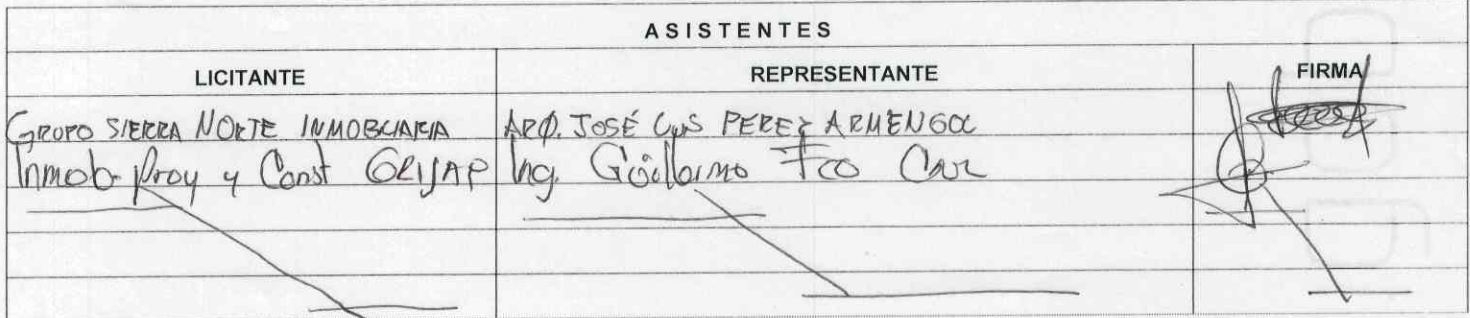 ASISTENTES
LICITANTE REPRESENTANTE FIRMA
GRUPO SIERRA NORTE INMOBILIARIA ARQ. JOSÉ LUIS PEREZ ARMENGOL
Inmob Proy y Const GRIJAP Ing. Guillermo Fco